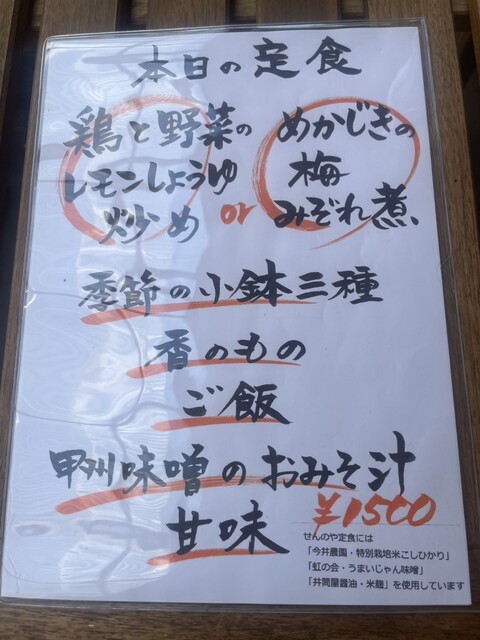 本日の定食
鶏と野菜の
レモンしょうゆ
炒め
or
めかじきの
梅
みぞれ煮、
季節の小鉢三種
香のもの
ご飯
甲州味噌のおみそ汁
甘味
¥1500
せんのや定食には
「今井農園・特別栽培米こしひかり」
「虹の会・うまいじゃん味噌」
「井筒屋醤油・米麹」を使用しています